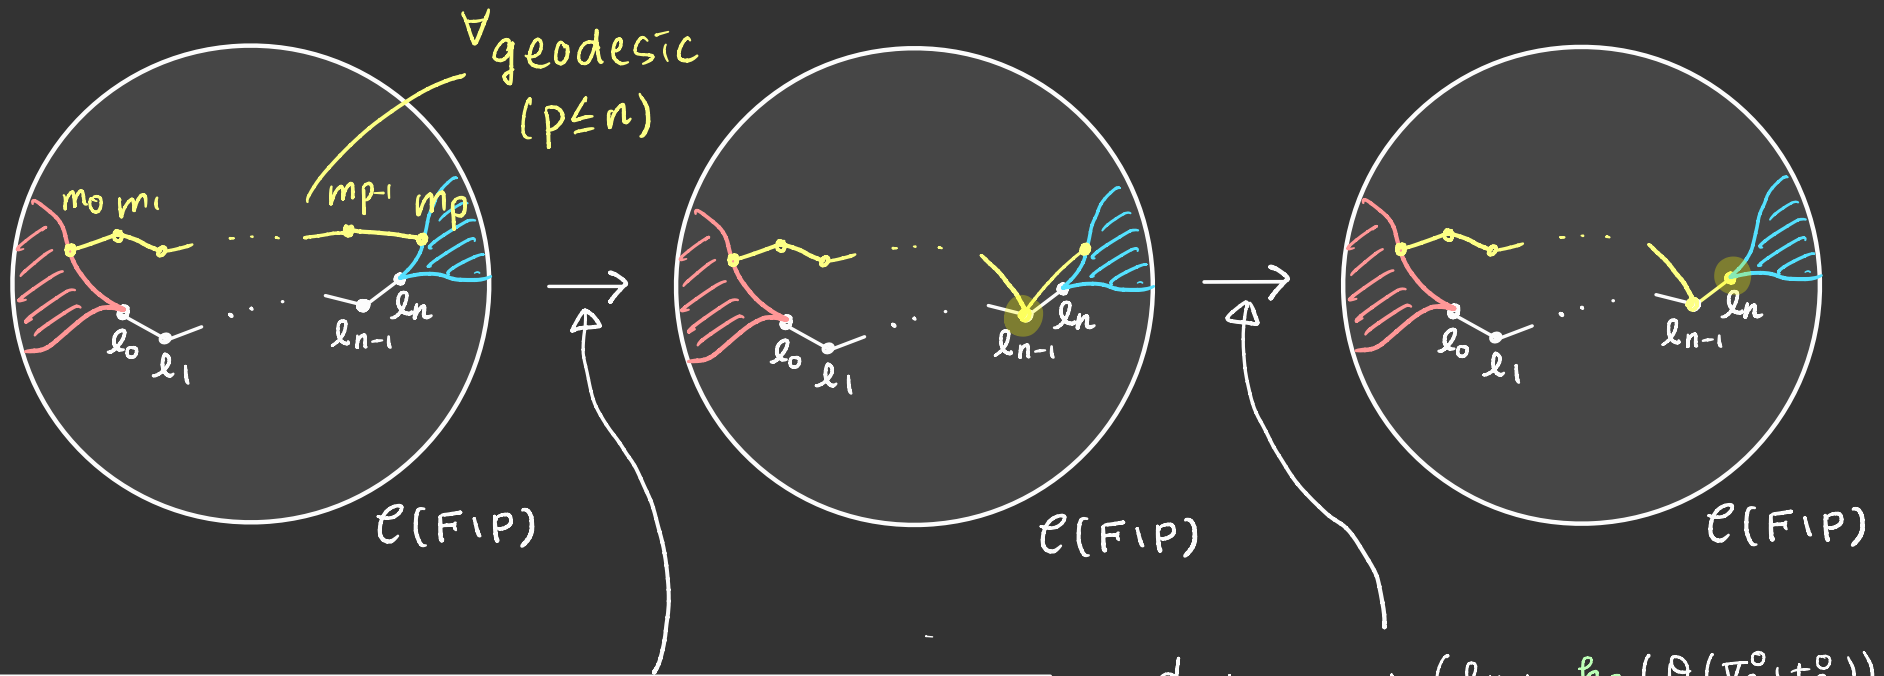 ∀geodesic
(p≤n)
m0 m1
mp-1
mp
ℓ0
ℓ1
ℓn-1
ℓn
C(F\P)
ℓ0
ℓ1
ℓn-1
ℓn
C(F\P)
ℓ0
ℓ1
ℓn-1
ℓn
C(F\P)